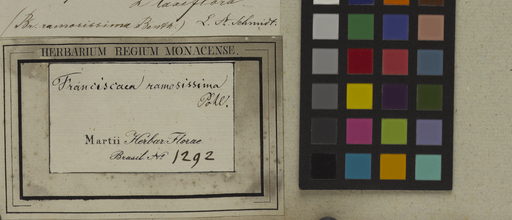 laxiflora
(Br. ramosissima Benth.) L. A. Schmidt.
HERBARIUM REGIUM MONACENSE.
Franciscaea ramosissima
Pohl.
Martii Herbar. Florae
Brasil. No 1292